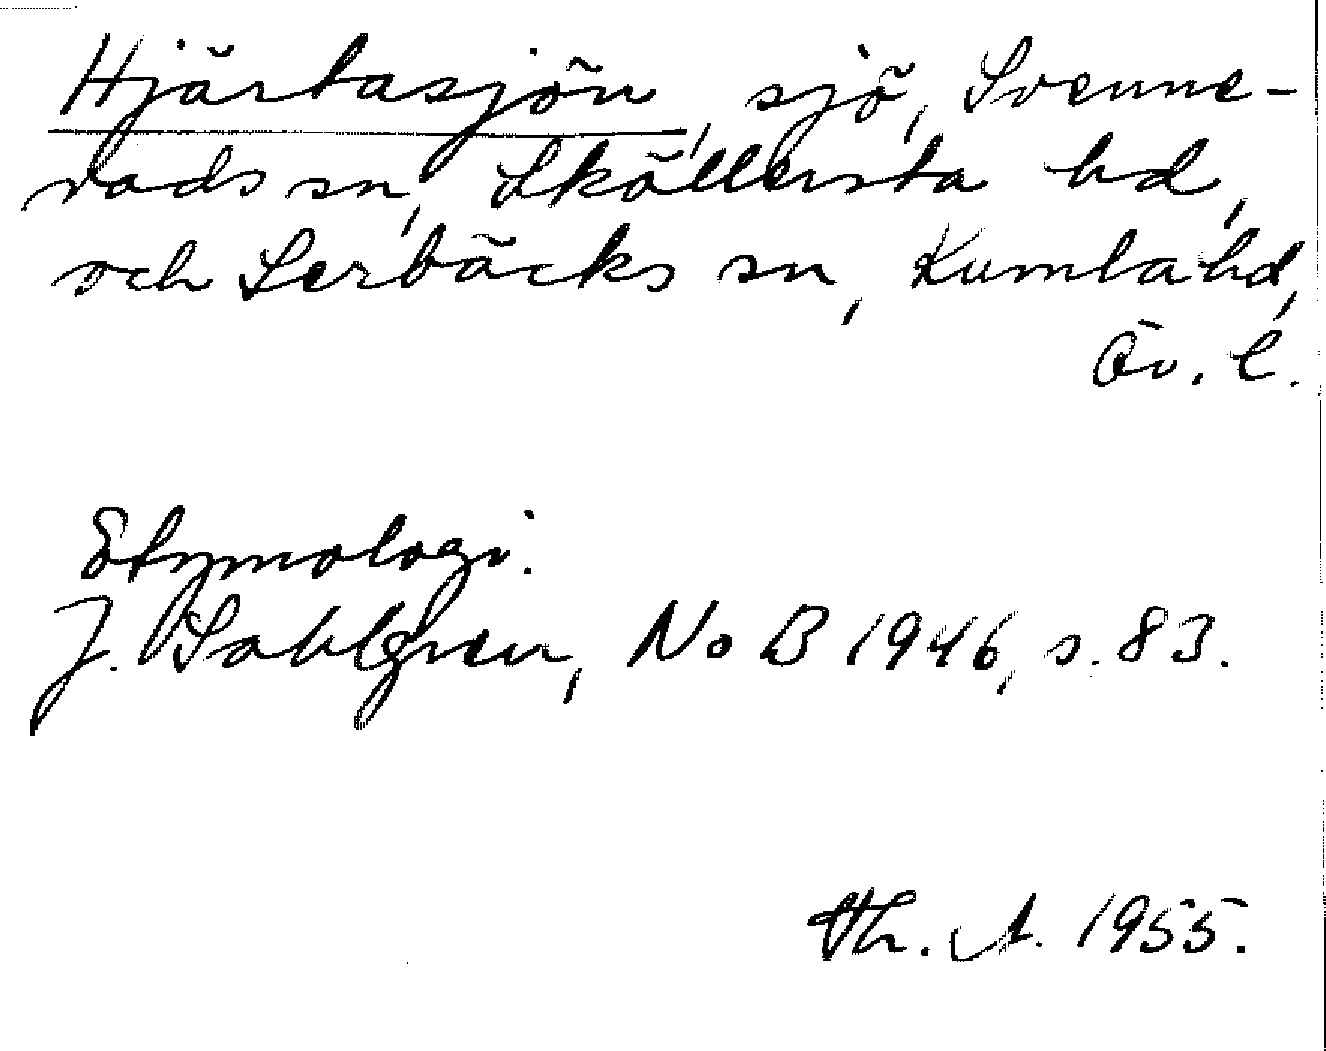 Hjärtasjön, sjö, Svenne-
vads sn, Sköllersta hd,
och Lerbäcks sn, Kumla hd,
Ör. l.
Etymologi.
J. Sahlgren, NoB 1946, s. 83.
Th. A. 1955.